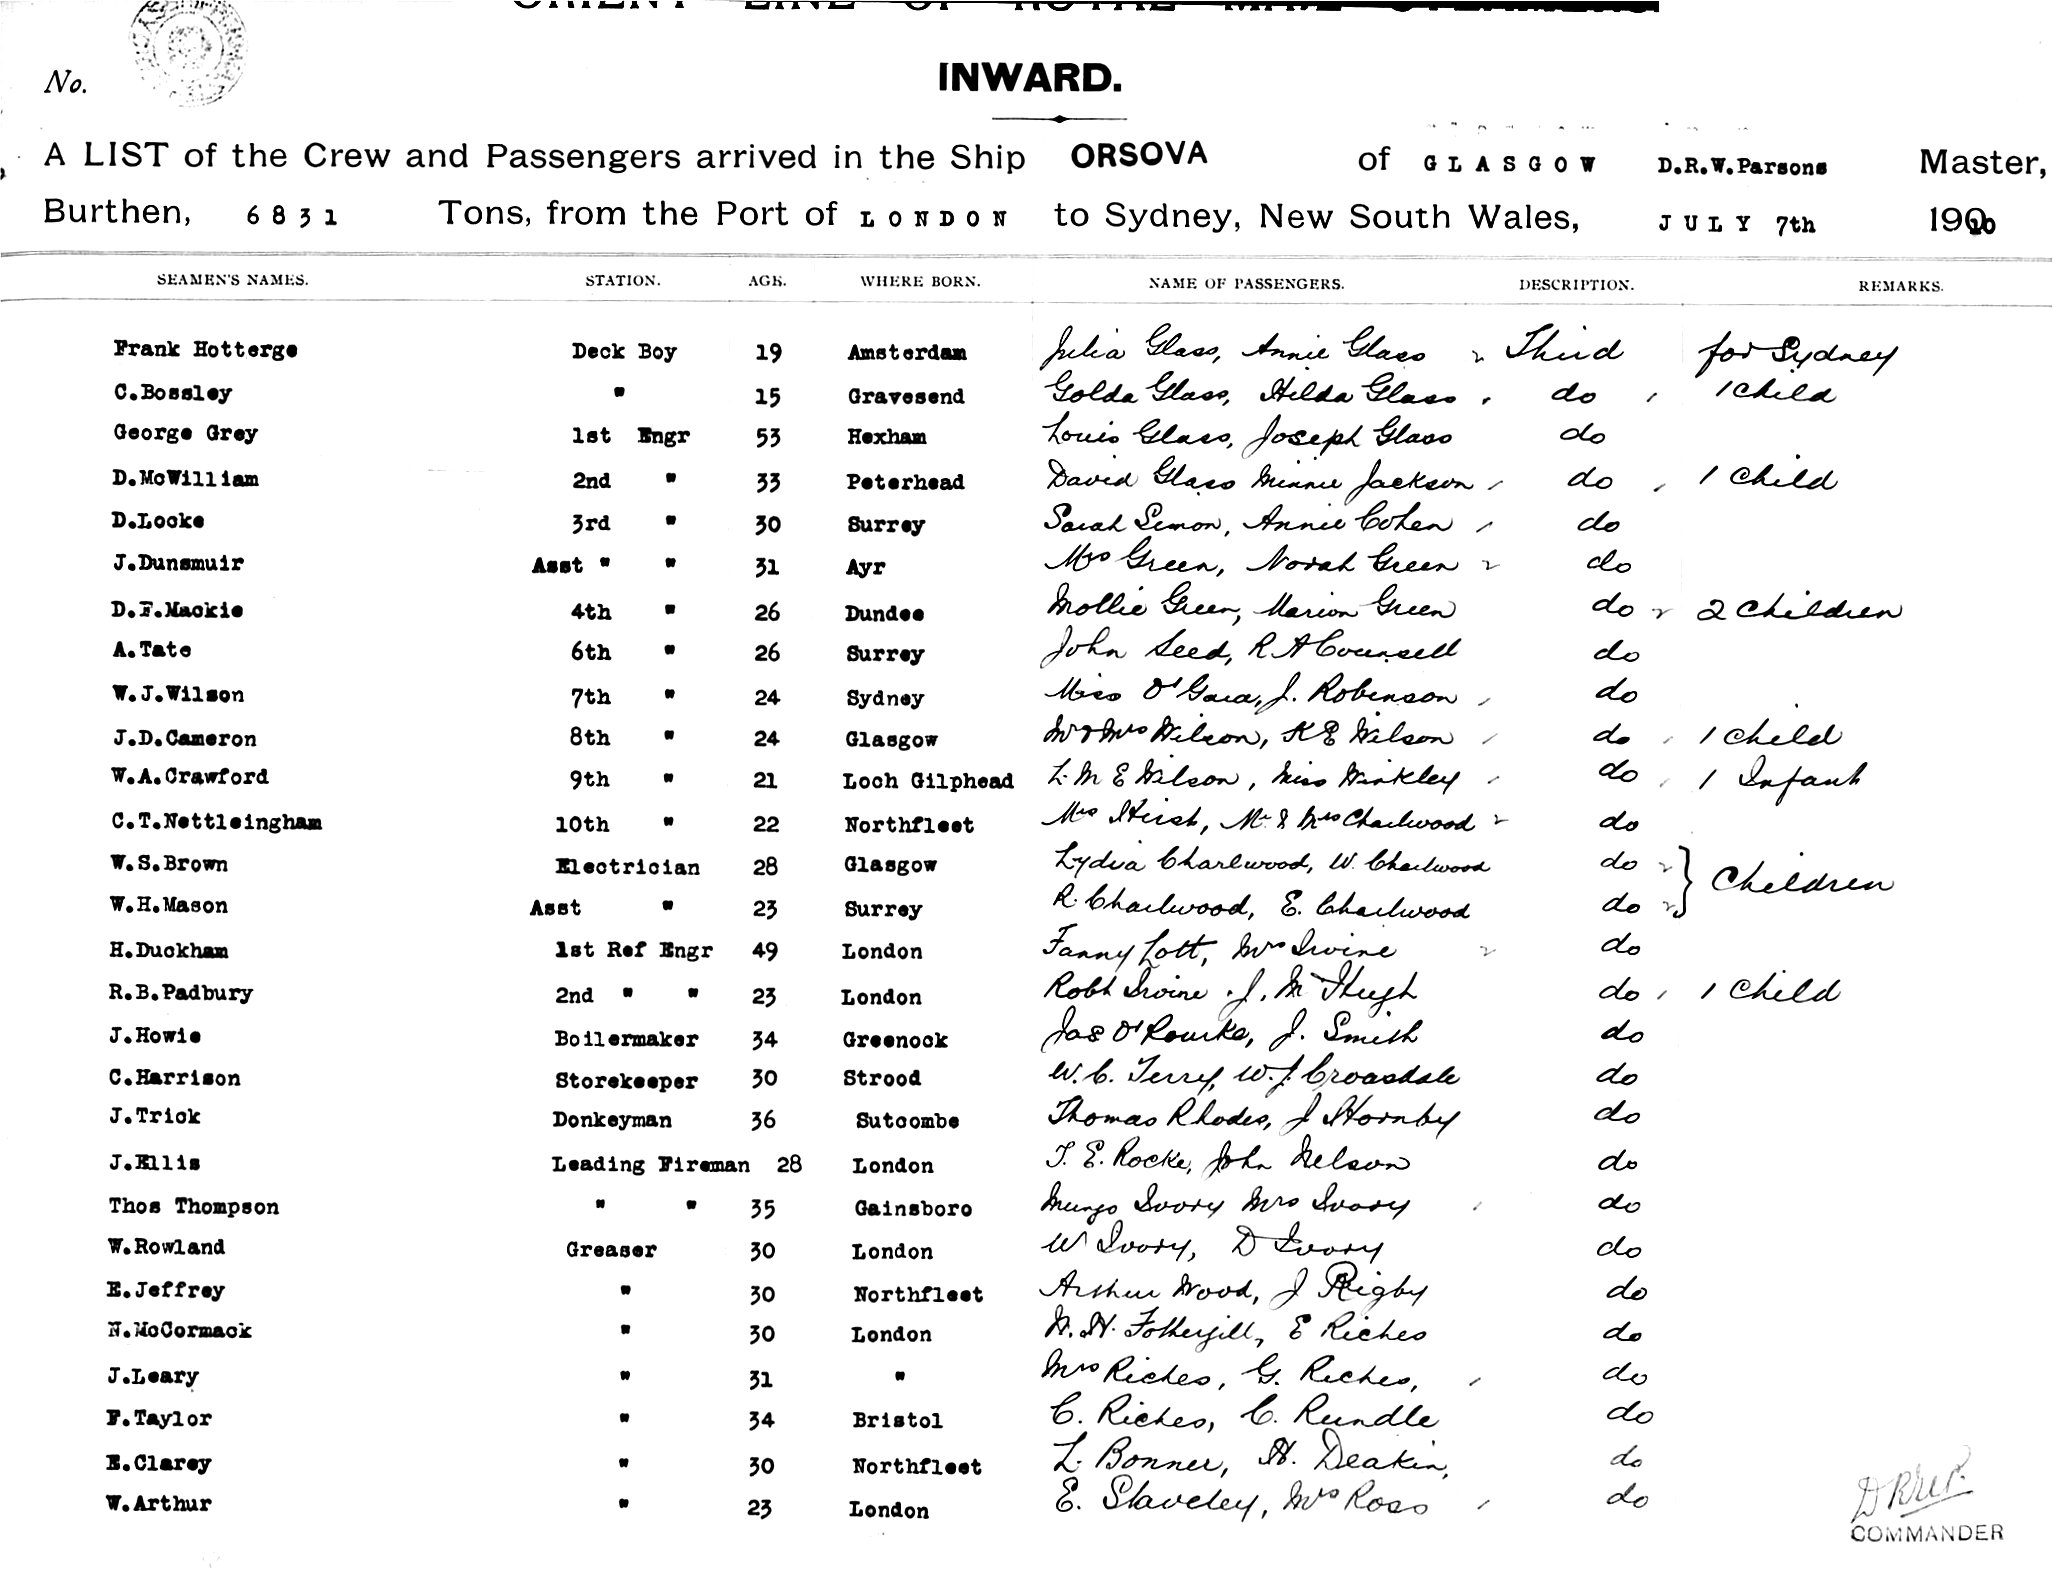 No.
INWARD.
A LIST of the Crew and Passengers arrived in the Ship ORSOVA of GLASGOW D.R.W.Parsons Master,
Burthen, 6831 Tons, from the Port of LONDON to Sydney, New South Wales, JULY 7th 1910
SEAMEN'S NAMES. STATION. AGE. WHERE BORN. NAME OF PASSENGERS. DESCRIPTION. REMARKS.
Frank Hotterge Deck Boy 19 Amsterdam Julia Glass, Annie Glass Third for Sydney
C.Bossley " 15 Gravesend Golda Glass, Hilda Glass do 1 Child
George Grey 1st Engr 53 Hexham Louis Glass, Joseph Glass do
D.McWilliam 2nd " 33 Peterhead David Glass Minnie Jackson do 1 Child
D.Locke 3rd " 30 Surrey Sarah Simon, Annie Cohen do
J.Dunsmuir Asst " " 31 Ayr Mrs Green, Norah Green do
D.F.Mackie 4th " 26 Dundee Mollie Green, Marion Green do 2 Children
A.Tate 6th " 26 Surrey John Seed, R A Counsell do
W.J.Wilson 7th " 24 Sydney Miss O'Gara, J. Robinson do
J.D.Cameron 8th " 24 Glasgow Mr & Mrs Wilson, K E Wilson do 1 Child
W.A.Crawford 9th " 21 Loch Gilphead L. M E Wilson, Miss Winkley do 1 Infant
C.T.Nettleingham 10th " 22 Northfleet Mrs Hirst, Mr & Mrs Charlwood do
W.S.Brown Electrician 28 Glasgow Lydia Charlwood, W. Charlwood do
W.H.Mason Asst " 23 Surrey R. Charlwood, E. Charlwood do Children
H.Duckham 1st Ref Engr 49 London Fanny Lott, Mrs Irvine do
R.B.Padbury 2nd " " 23 London Robt Irvine J. McHugh do 1 Child
J.Howie Boilermaker 34 Greenock Jas O'Rourke, J. Smith do
C.Harrison Storekeeper 30 Strood W. C. Terry, W. J. Croasdale do
J.Trick Donkeyman 36 Sutcombe Thomas Rhodes, J Hornby do
J.Ellis Leading Fireman 28 London T. E. Rocke, John Nelson do
Thos Thompson " " 35 Gainsboro Mungo Ivory Mrs Ivory do
W.Rowland Greaser 30 London W Ivory, D Ivory do
E.Jeffrey " 30 Northfleet Arthur Wood, J Rigby do
N.McCormack " 30 London W. H. Fothergill, E Riches do
J.Leary " 31 " Mrs Riches, G. Riches, do
F.Taylor " 34 Bristol C. Riches, C. Rundle do
E.Clarey " 30 Northfleet L. Bonner, H. Deakin, do
W.Arthur " 23 London E. Staveley, Mrs Ross do
COMMANDER